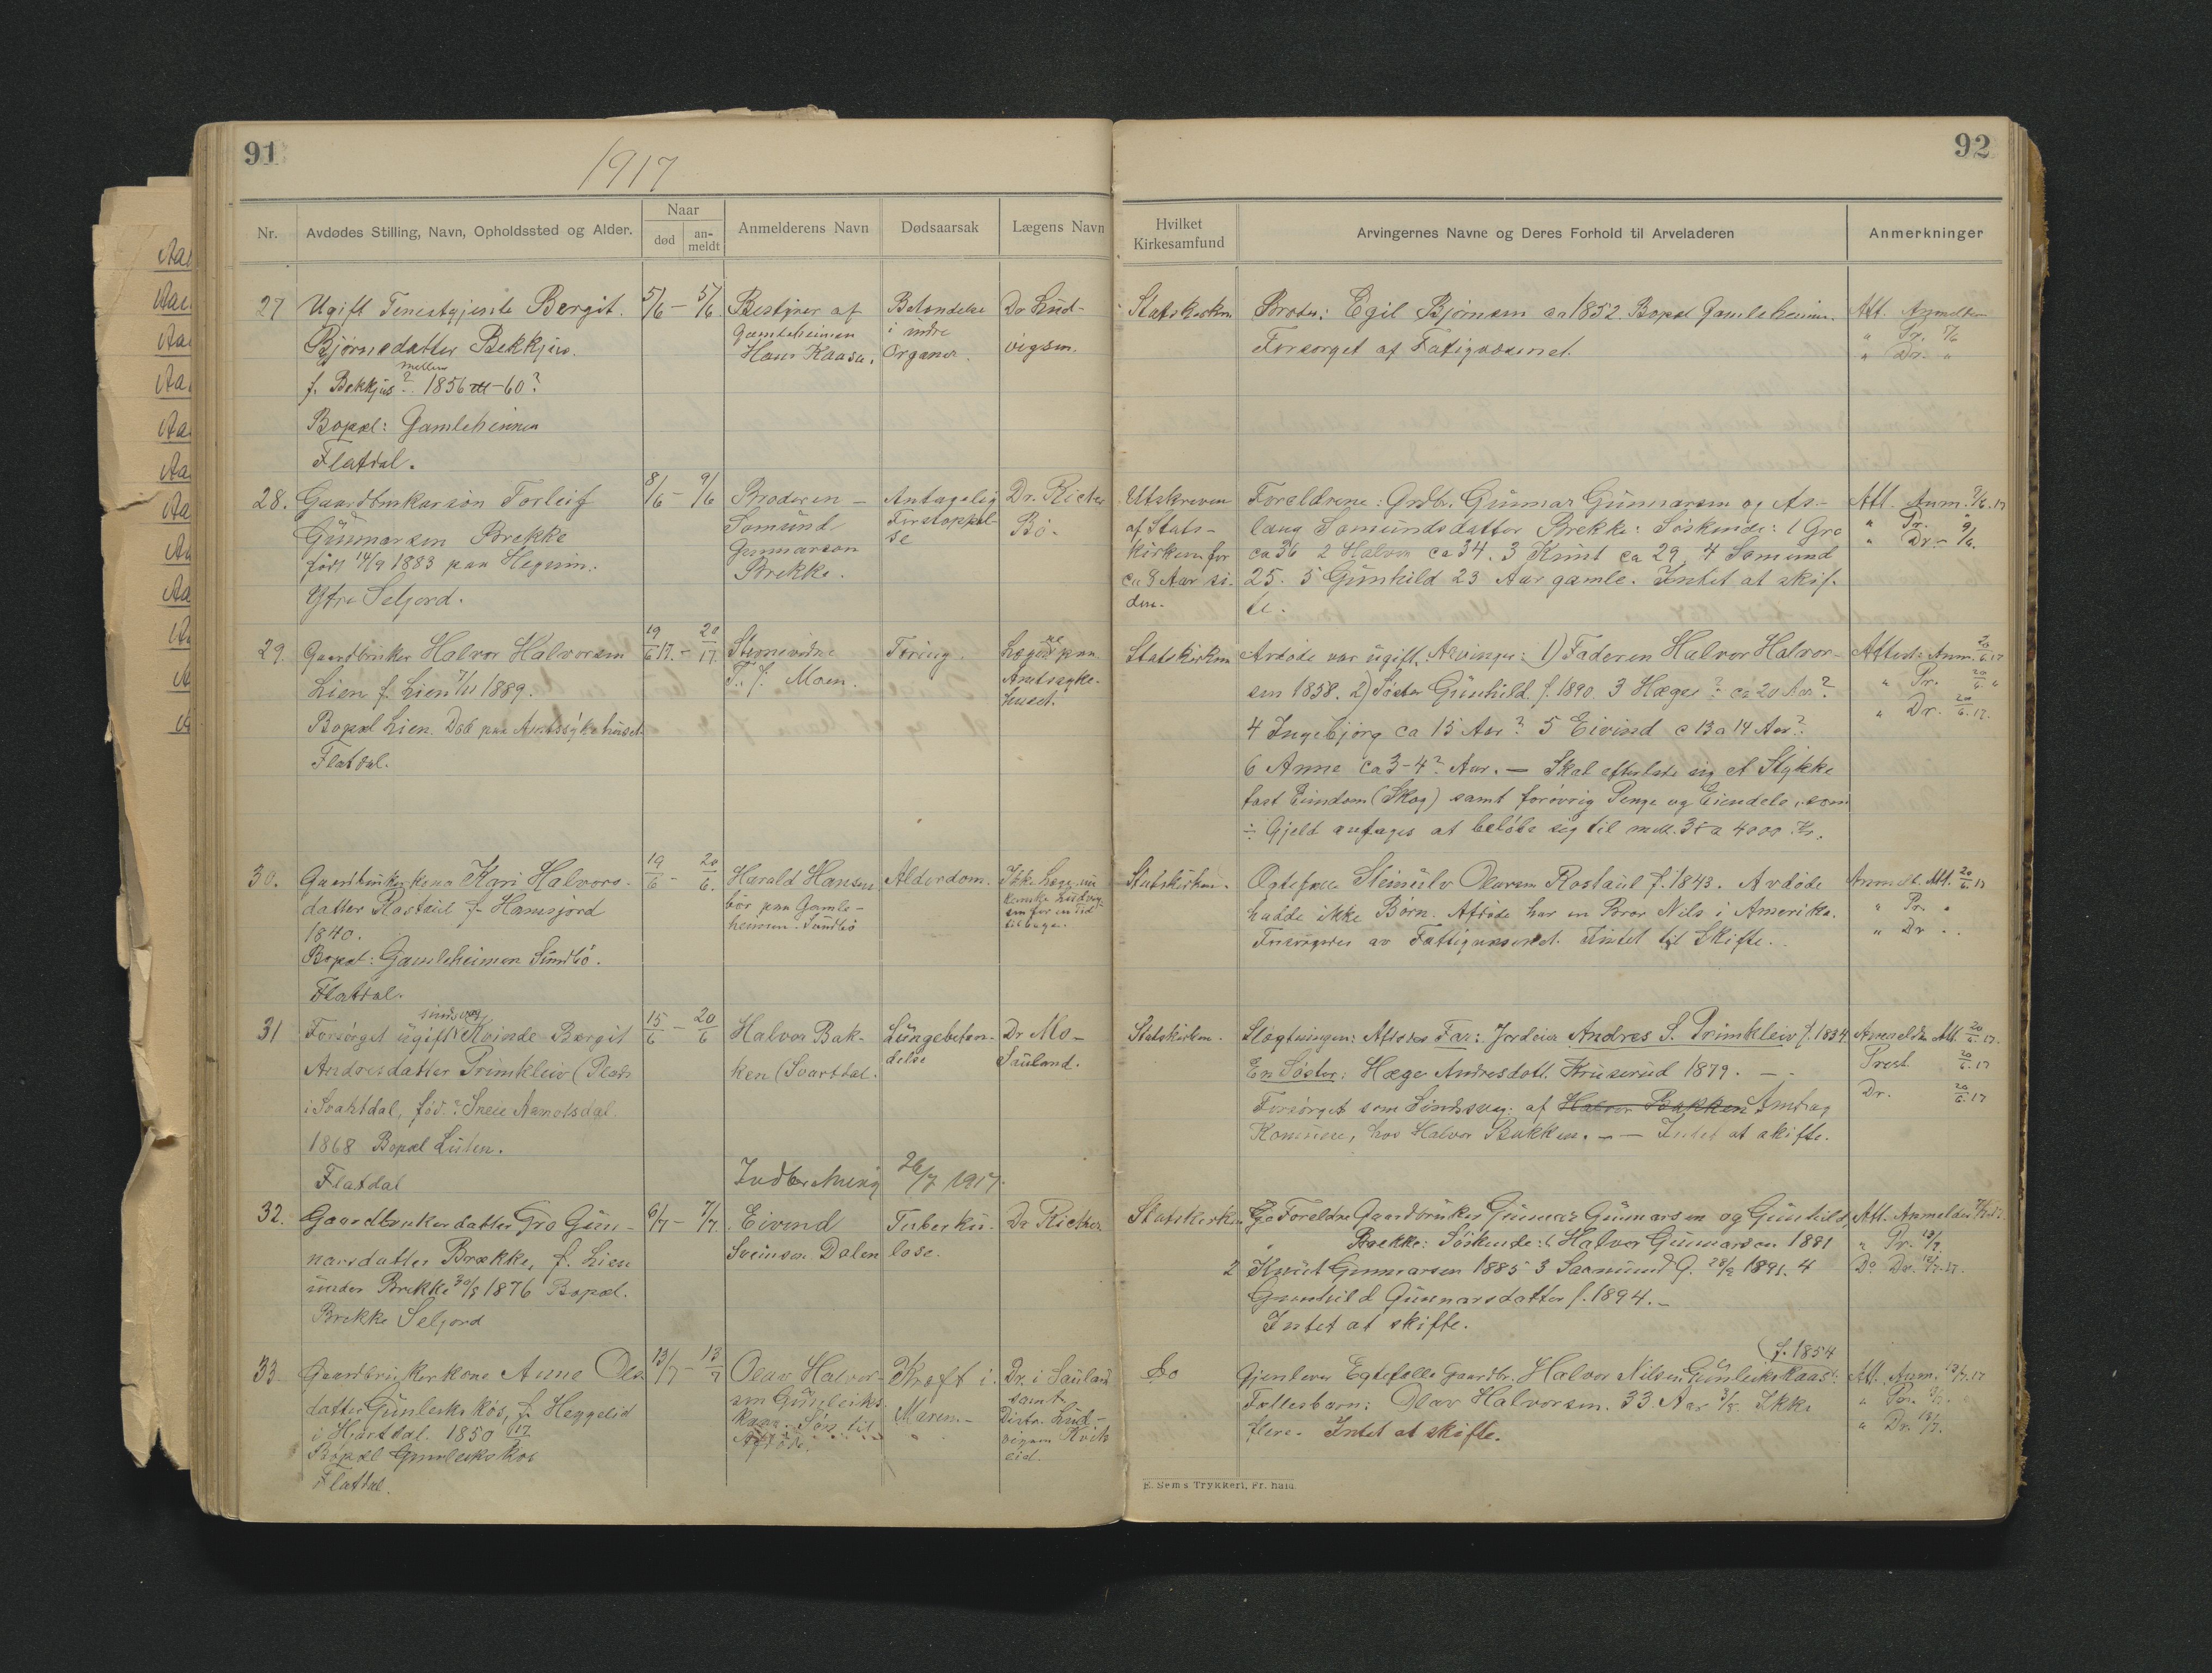 91
1917
Nr.
Avdødes Stilling, Navn, Opholdssted og Alder.
Naar
død
an-
meldt
Anmelderens Navn
Dødsaarsak
Lægens Navn
27
Ugift Tenestgjente Bergit
Bjørnsdatter Bekkjus.
mellem
f. Bekkjus? 1856 -60?
Bopæl: Gamleheimen
Flatdal.
5/6 — 5/6
Bestyrer af
Gamleheimen
Hans Kaasa.
Betændelse
i indre
Organer.
Dr Lud-
vigsen.
28.
Gaardbrukarsøn Torleif
Gunnarsen Brekke
født 14/9 1883 paa
Ytre Seljord.
8/6 - 9/6
Broderen —
Samund
Gunnarson
Brekke.
Antagelig
Forstoppel-
se
Dr. Richter
Bö.
29.
Gaardbruker Halvor Halvorsen
Lien f. Lien 7/11 1889.
Bopæl Lien. Död paa Amtssykehuset
Flatdal.
19/6 17. - 20/6 17.
Stevnevidne
T. J. Moen.
Tæring.
Lægene paa
Amtssyke-
huset.
30.
Gaardbrukerkona Kari Halvors-
datter Rostaul f. Hamsjord
1840.
Bopæl: Gamleheimen Sundbö.
Flatdal.
19/6 - 20/6.
Harald Hansen
bör paa Gamle-
heimen. Sundbö
Alderdom.
Ikke Læge
Ludvig-
sen for en Tid
tilbage.
31
sindssvag
Forsørget ugift Kvinde Bergit
Andresdatter Primkleiv (Plads
i Svartdal, fød.:
1868 Bopæl Lüten.
Flatdal
15/6 — 20/6
Halvor Bak-
ken (Svartdal.
Lungebeten-
delse
Dr Mo-
Sauland.
Indberetning 26/7 1917.
32.
Gaardbrukerdatter Gro Gun-
narsdatter Brække, f. Lien
under Brekke 30/8 1876 Bopæl.
Brekke Seljord
6/7 — 7/7
Eivind
Sveinson Dalen
Tuberku-
lose.
Dr Richter
33.
Gaardbrukerkone Anne Ols
datter Gunleikskos, f. Heggelid
i Hjartdal. 1850
Bopæl Gunleikskos
Flatdal.
13/7 — 13/7
Olav Halvor-
sen Gunleiks-
kaas. Søn til
Afdøde.
Kræft i
Maven.
Dr. i Sauland
samt
Distr. Lud-
vigsen Kvits-
eid.
92
Hvilket
Kirkesamfund
Arvingernes Navne og Deres Forhold til Arveladeren
Anmerkninger
Statskirken
Broder: Egil Bjørnsen ca 1852. Bopæl Gamleheimen.
Forsørget af Fatigvæsenet.
Att. Anmelder
" Pr. 5/6
" Dr. "
Utskreven
af Stats-
kirken for
ca 8 Aar si-
den.
Foreldrene: Grdb. Gunnar Gunnarsen og As-
laug Samundsdatter Brekke: Söskende: 1 Gro
ca 36 2 Halvor ca 34. 3 Knut ca 29, 4 Samund
25. 5 Gunhild 23 Aar gamle. Intet at skif-
te.
Att. Anm. 9/6.17
" Pr. "
" Dr. - 9/6.
Statskirken
Avdøde var ugift. Arvinger: 1) Faderen Halvor Halvor-
sen 1858. 2) Søster Gunhild f. 1890. 3 Hæge ? ca 20 Aar?
4 Ingebjørg ca 15 Aar? 5 Eivind c 13 a 14 Aar?
6 Anne ca 3-4? Aar. — Skal efterlate sig et Stykke
fast Eiendom (Skog) samt forøvrig Penge og Eiendele, som
÷ Gjeld antages at beløbe sig til mell. 3 a 4000 Kr.
Attest: Anm. 20/6.17
" Pr. 20/6 "
" Dr. 20/6.17.
Statskirken.
Ægtefælle Steinulv Olavsen Rostaul f. 1843. Avdöde
hadde ikke Börn. Afdöde har en Bror Nils i Amerika.
Forsörgedes av Fattigvæsenet. Intet til Skifte.
Anmeld. Att. 20/6.17
" Pr. "
" Dr. "
Statskirken.
Slægtningen: Afdødes Far: Jordeier Andres S. Primkleiv f. 1834.
En Søster: Hæge Andresdatt. Kruserud 1879. —
Forsörget som Sindssvag: af Halvor Bakken
Komune, hos Halvor Bakken. — — Intet at skifte.
Anmelder Att. 20/6.17.
Prest 20/6.17
Dr. 20/6.17
Statskirken
Foreldre Gaardbruker Gunnar Gunnarsen og Gunhild
Brekke: Söskende: 1 Halvor Gunnarsen 1881
2 Knut Gunnarsen 1885 3 Saamund G. 28/2 1891. 4
Gunhild Gunnarsdatter f. 1894. -
Intet at skifte.
Att. Anmelder 7/7.17.
" Pr.
Do Dr.
Do
(f. 1854
Gjenlevn Egtefelle Gaardbr. Halvor Nilsen Gunleikskaas
Fellesbarn: Olav Halvorsen. 33 Aar 3/8. Ikke
flere. Intet at skifte.
Att. Anm. 13/7.17
" Pr. "
" Dr. 13/7.
E. Sem's Trykkeri, Fr.hald.